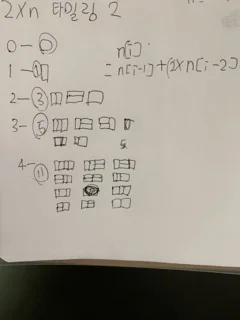 2xn 타일링 2
0 - 0
n[i]
1 - 1
= n[i-1] + (2 x n[i-2]
2 - 3
3 - 5
5
4 - 11